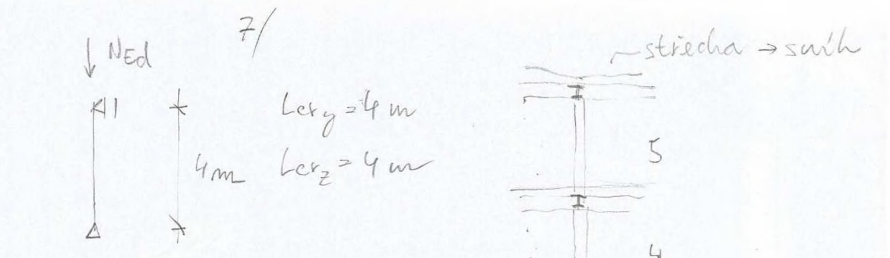 7/
N_Ed
L_cr,y = 4 m
L_cr,z = 4 m
4 m
střecha → sníh
5
4